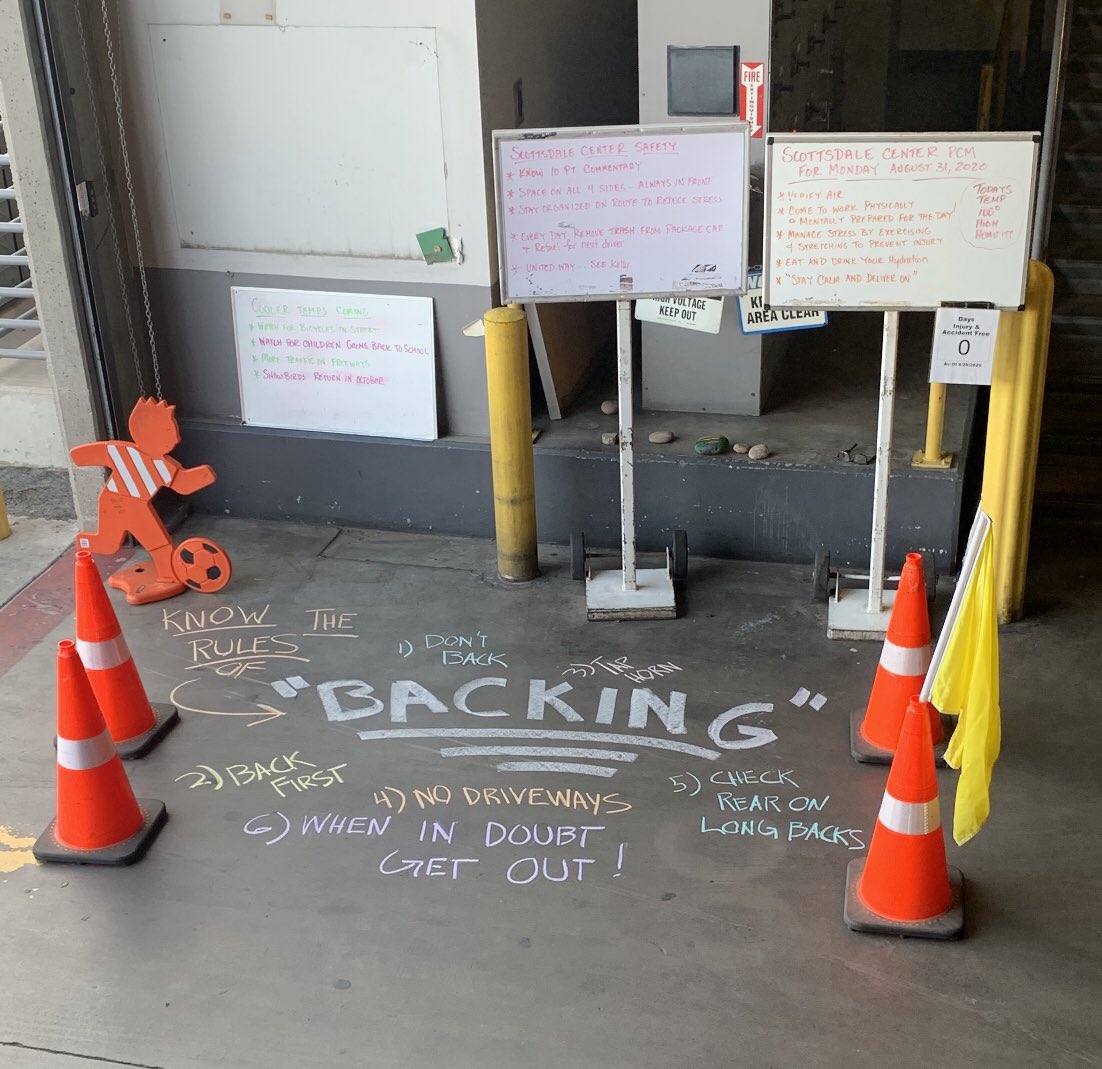 FIRE
EXTINGUISHER
SCOTTSDALE CENTER SAFETY
* KNOW 10 PT COMMENTARY
* SPACE ON ALL 4 SIDES - ALWAYS IN FRONT
* STAY ORGANIZED ON ROUTE TO REDUCE STRESS
* EVERY DAY, REMOVE TRASH FROM PACKAGE CAR
& Refuel for next driver
* UNITED WAY... SEE Kelly
SCOTTSDALE CENTER PCM
FOR MONDAY AUGUST 31, 2020
* VERIFY AIR
* COME TO WORK PHYSICALLY
& MENTALLY PREPARED FOR THE DAY!
* MANAGE STRESS BY EXERCISING
& STRETCHING TO PREVENT INJURY
* EAT AND DRINK YOUR Hydration
* "STAY CALM AND DELIVER ON"
TODAYS
TEMP
100°
HIGH
HUMIDITY
HIGH VOLTAGE
KEEP OUT
AREA CLEAR
Days
Injury &
Accident Free
0
COOLER TEMPS COMING
* WATCH FOR BICYCLES IN STREET
* WATCH FOR CHILDREN GOING BACK TO SCHOOL
* MORE TRAFFIC ON FREEWAYS
* SNOWBIRDS RETURN IN OCTOBER
KNOW THE
RULES
OF
"BACKING"
1) DON'T
BACK
2) BACK
FIRST
3) TAP
HORN
4) NO DRIVEWAYS
5) CHECK
REAR ON
LONG BACKS
6) WHEN IN DOUBT
GET OUT!